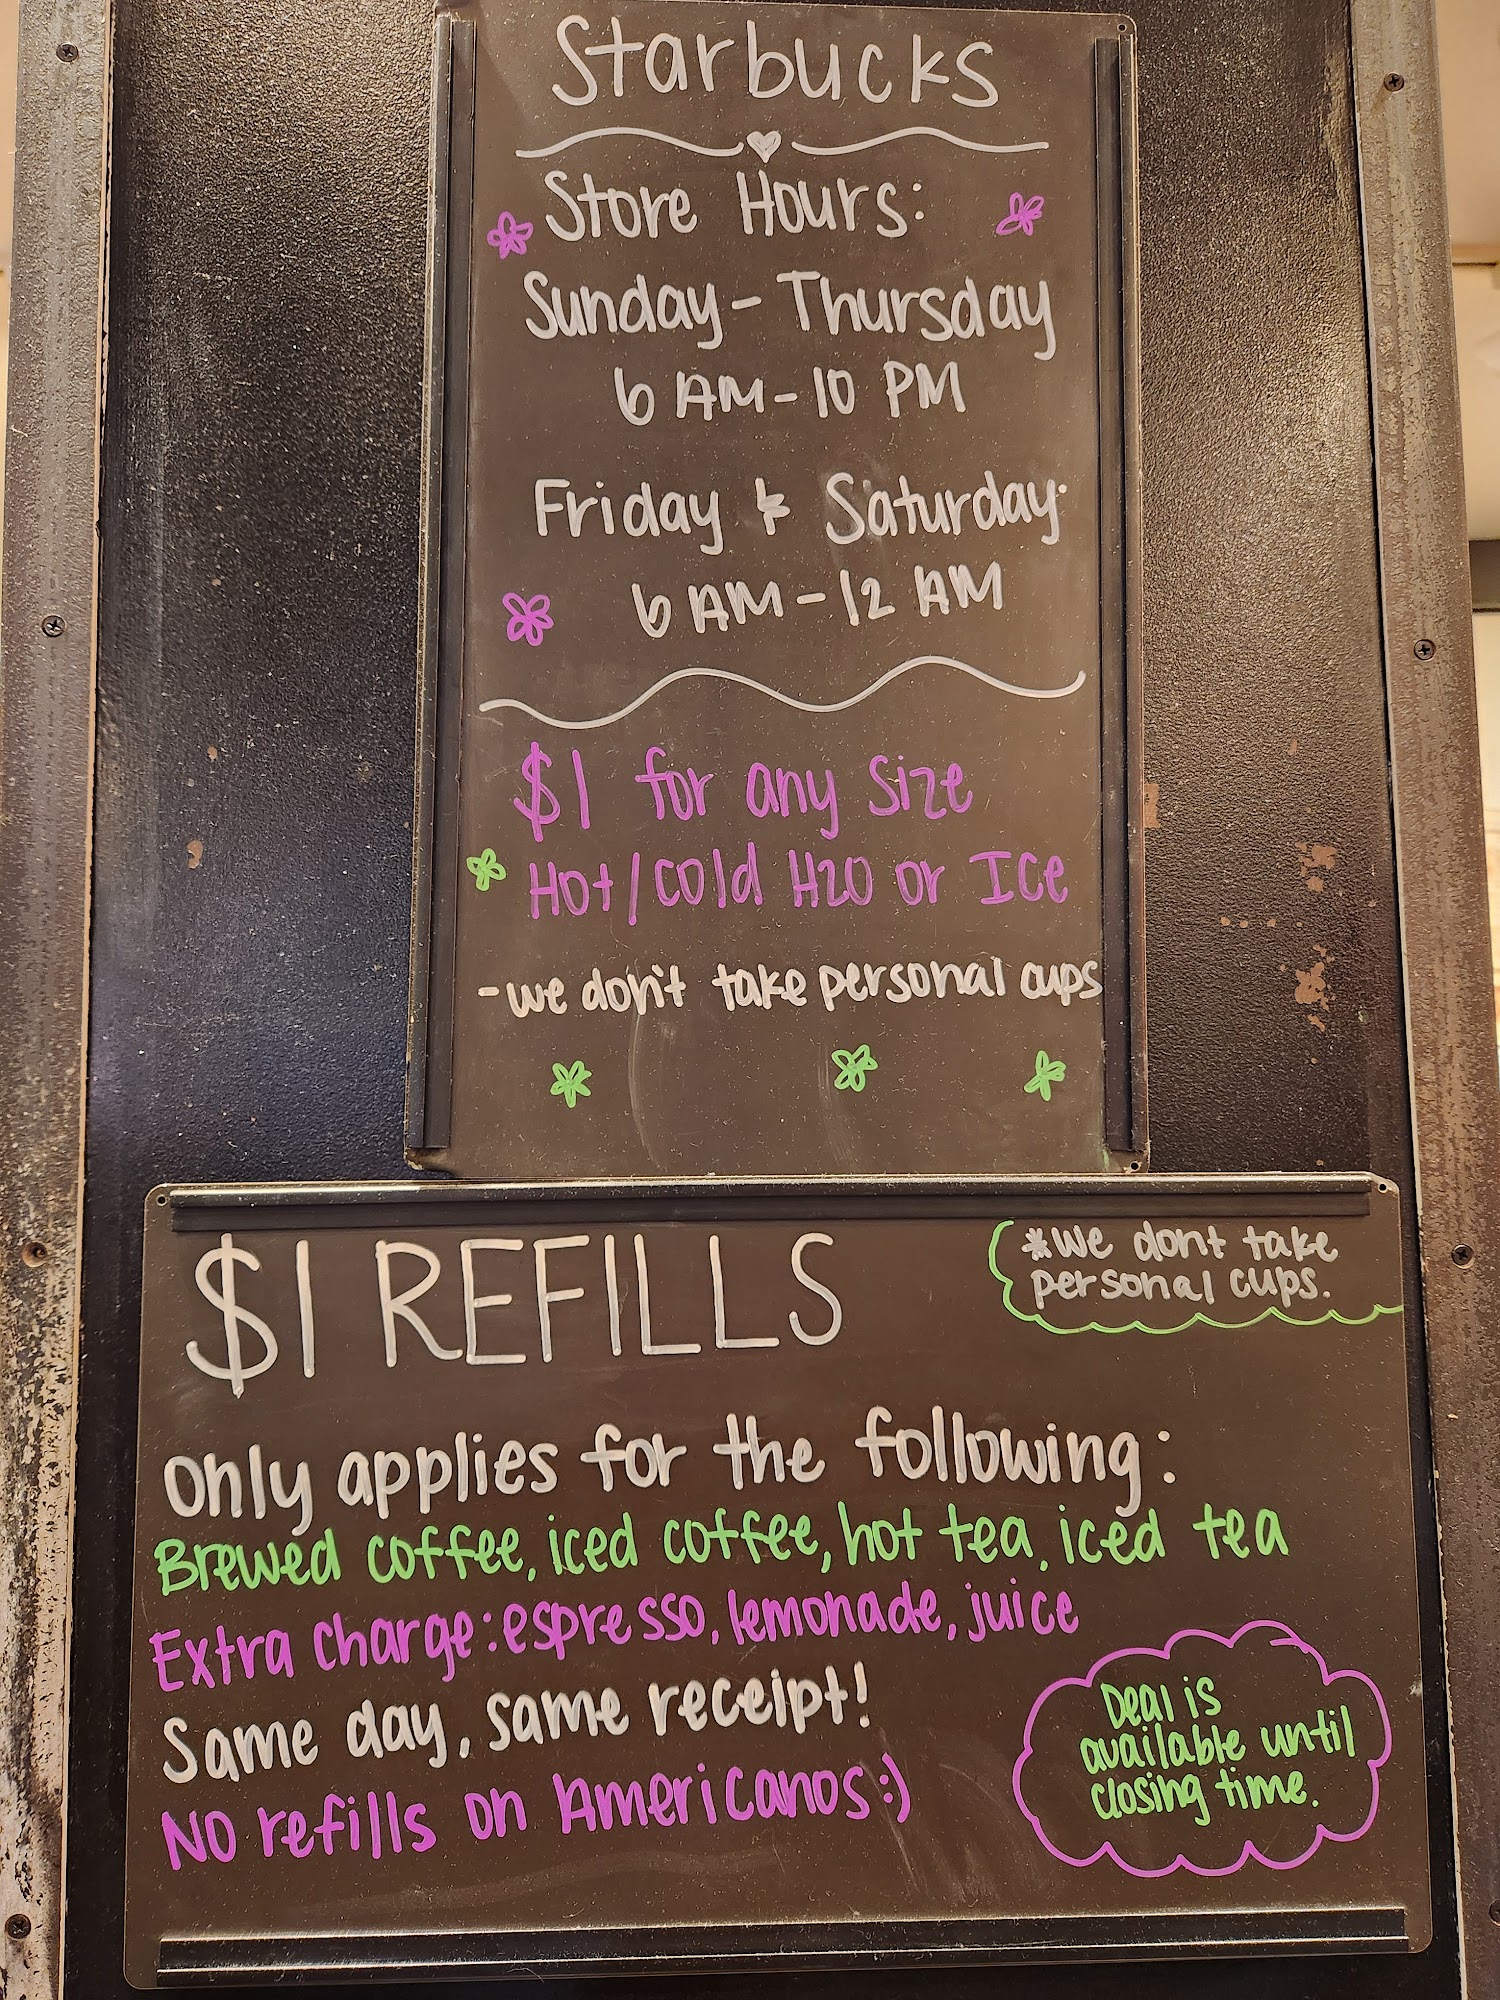 Starbucks
Store Hours:
Sunday - Thursday
6 AM - 10 PM
Friday & Saturday
6 AM - 12 AM
$1 for any size
Hot/cold H2O or Ice
- we don't take personal cups
$1 REFILLS
*We dont take
personal cups.
Only applies for the following:
Brewed coffee, iced coffee, hot tea, iced tea
Extra charge: espresso, lemonade, juice
Same day, same receipt!
NO refills on Americanos :)
Deal is
available until
closing time.